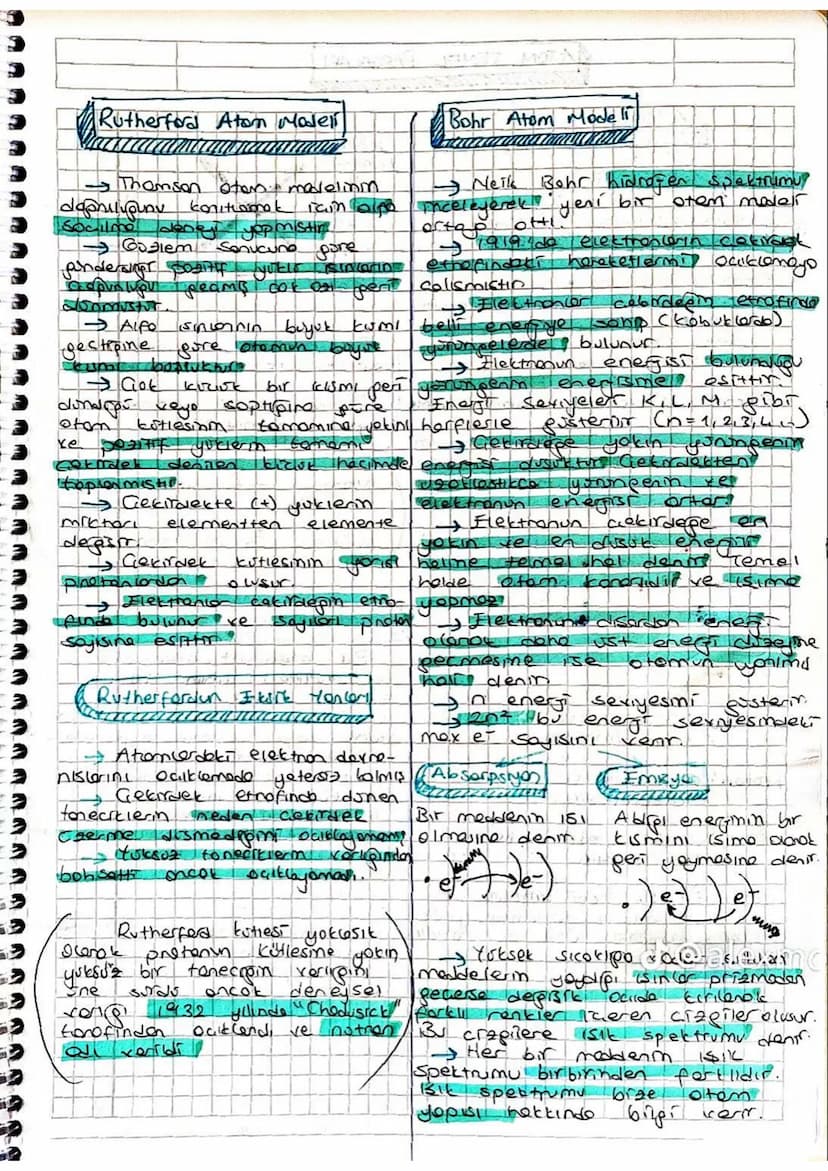 Rutherford Atom Modeli
→ Thomson atom modelinin
doğruluğunu kanıtlamak için alfa
saçılma deneyi yapmıştır
→ Gözlem sonucuna göre
gönderdiği pozitif yüklü ışınların
çoğu geçmiş çok azı geri
dönmüştür.
→ Alfa ışınlarının büyük kısmı
geçtiğine göre atomun büyük
kısmı boşluktur
→ Çok küçük bir kısmı geri
döndüğü veya saptığına göre
atom kütlesinin tamamına yakını
ve pozitif yüklerin tamamı
çekirdek denilen küçük hacimde
toplanmıştır.
→ Çekirdekte (+) yüklerin
miktarı elementten elemente
değişir.
→ Çekirdek kütlesinin yarısı
protonlardan oluşur.
→ Elektronlar çekirdeğin etra-
fında bulunur ve sayıları proton
sayısına eşittir
Rutherfordun Eksik Yanları
→ Atomlardaki elektron davra-
nışlarını açıklamada yetersiz kalmış
→ Çekirdek etrafında dönen
taneciklerin neden çekirdek
üzerine düşmediğini açıklayamamış
→ Yüksüz taneciklerin varlığından
bahsetti ancak açıklayamadı.
Rutherford kütlesi yaklaşık
olarak protonun kütlesine yakın
yüksüz bir taneciğin varlığını
öne sürdü ancak deneysel
varlığı 1932 yılında "Chadwick"
tarafından açıklandı ve nötron
adı verildi
Bohr Atom Modeli
→ Neils Bohr hidrojen spektrumu
inceleyerek yeni bir atom modeli
ortaya attı.
→ 1919'da elektronların çekirdek
etrafındaki hareketlerini açıklamaya
çalışmıştır
→ Elektronlar çekirdeğin etrafında
belli enerjiye sahip (kabuklarda)
yörüngelerde bulunur.
→ Elektronun enerjisi bulunduğu
yörüngenin enerjisine eşittir.
Enerji seviyeleri K, L, M gibi
harflerle gösterilir (n=1,2,3,4...)
→ Çekirdeğe yakın yörüngenin
enerjisi düşüktür Çekirdekten
uzaklaştıkça yörüngenin ve
elektronun enerjisi artar.
→ Elektronun çekirdeğe en
yakın ve en düşük enerjili
haline temel hal denir Temel
halde atom kararlıdır ve ışıma
yapmaz
→ Elektronun dışardan enerji
alarak daha üst enerji düzeyine
geçmesine ise atomun uyarılmış
hali denir
→ n enerji seviyesini gösterir.
→ 2n² bu enerji seviyesindeki
max e⁻ sayısını verir.
Absorpsiyon
Bir maddenin ısı
olmasına denir
e⁻ e⁻
Emisyon
Aldığı enerjinin bir
kısmını ışıma olarak
geri yaymasına denir.
e⁻ e⁻
→ Yüksek sıcaklığa
maddelerin yaydığı ışınlar prizmadan
geçerse değişik açıda kırılarak
farklı renkler içeren çizgiler oluşur.
Bu çizgilere ışık spektrumu denir.
→ Her bir maddenin ışık
spektrumu birbirinden farklıdır.
Işık spektrumu bize atom
yapısı hakkında bilgi verir.